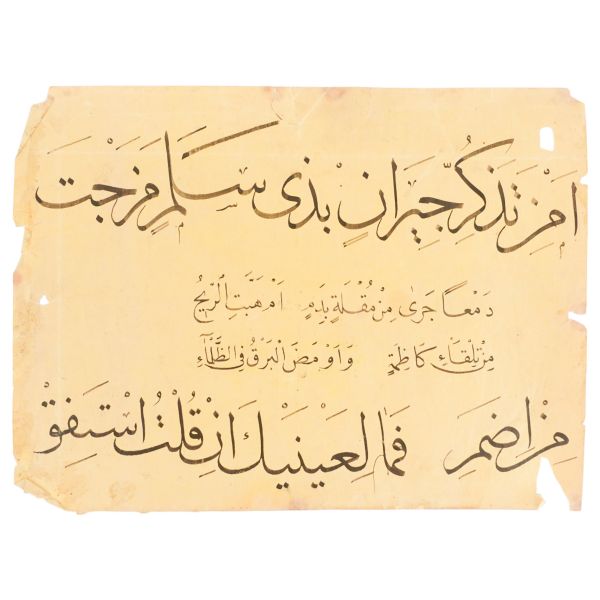 اَمِنْ تَذَكُّرِ جِيرَانٍ بِذِى سَلَمٍ مَزَجْتَ
دَمْعاً جَرٰى مِنْ مُقْلَةٍ بِدَمٍ اَمْ هَبَّتِ الرِّيحُ
مِنْ تِلْقَاءِ كَاظِمَةٍ وَاَوْمَضَ الْبَرْقُ فِى الظَّلْمَاءِ
مِنْ اِضَمٍ فَمَا لِعَيْنَيْكَ اِنْ قُلْتَ اسْتَفِقْ